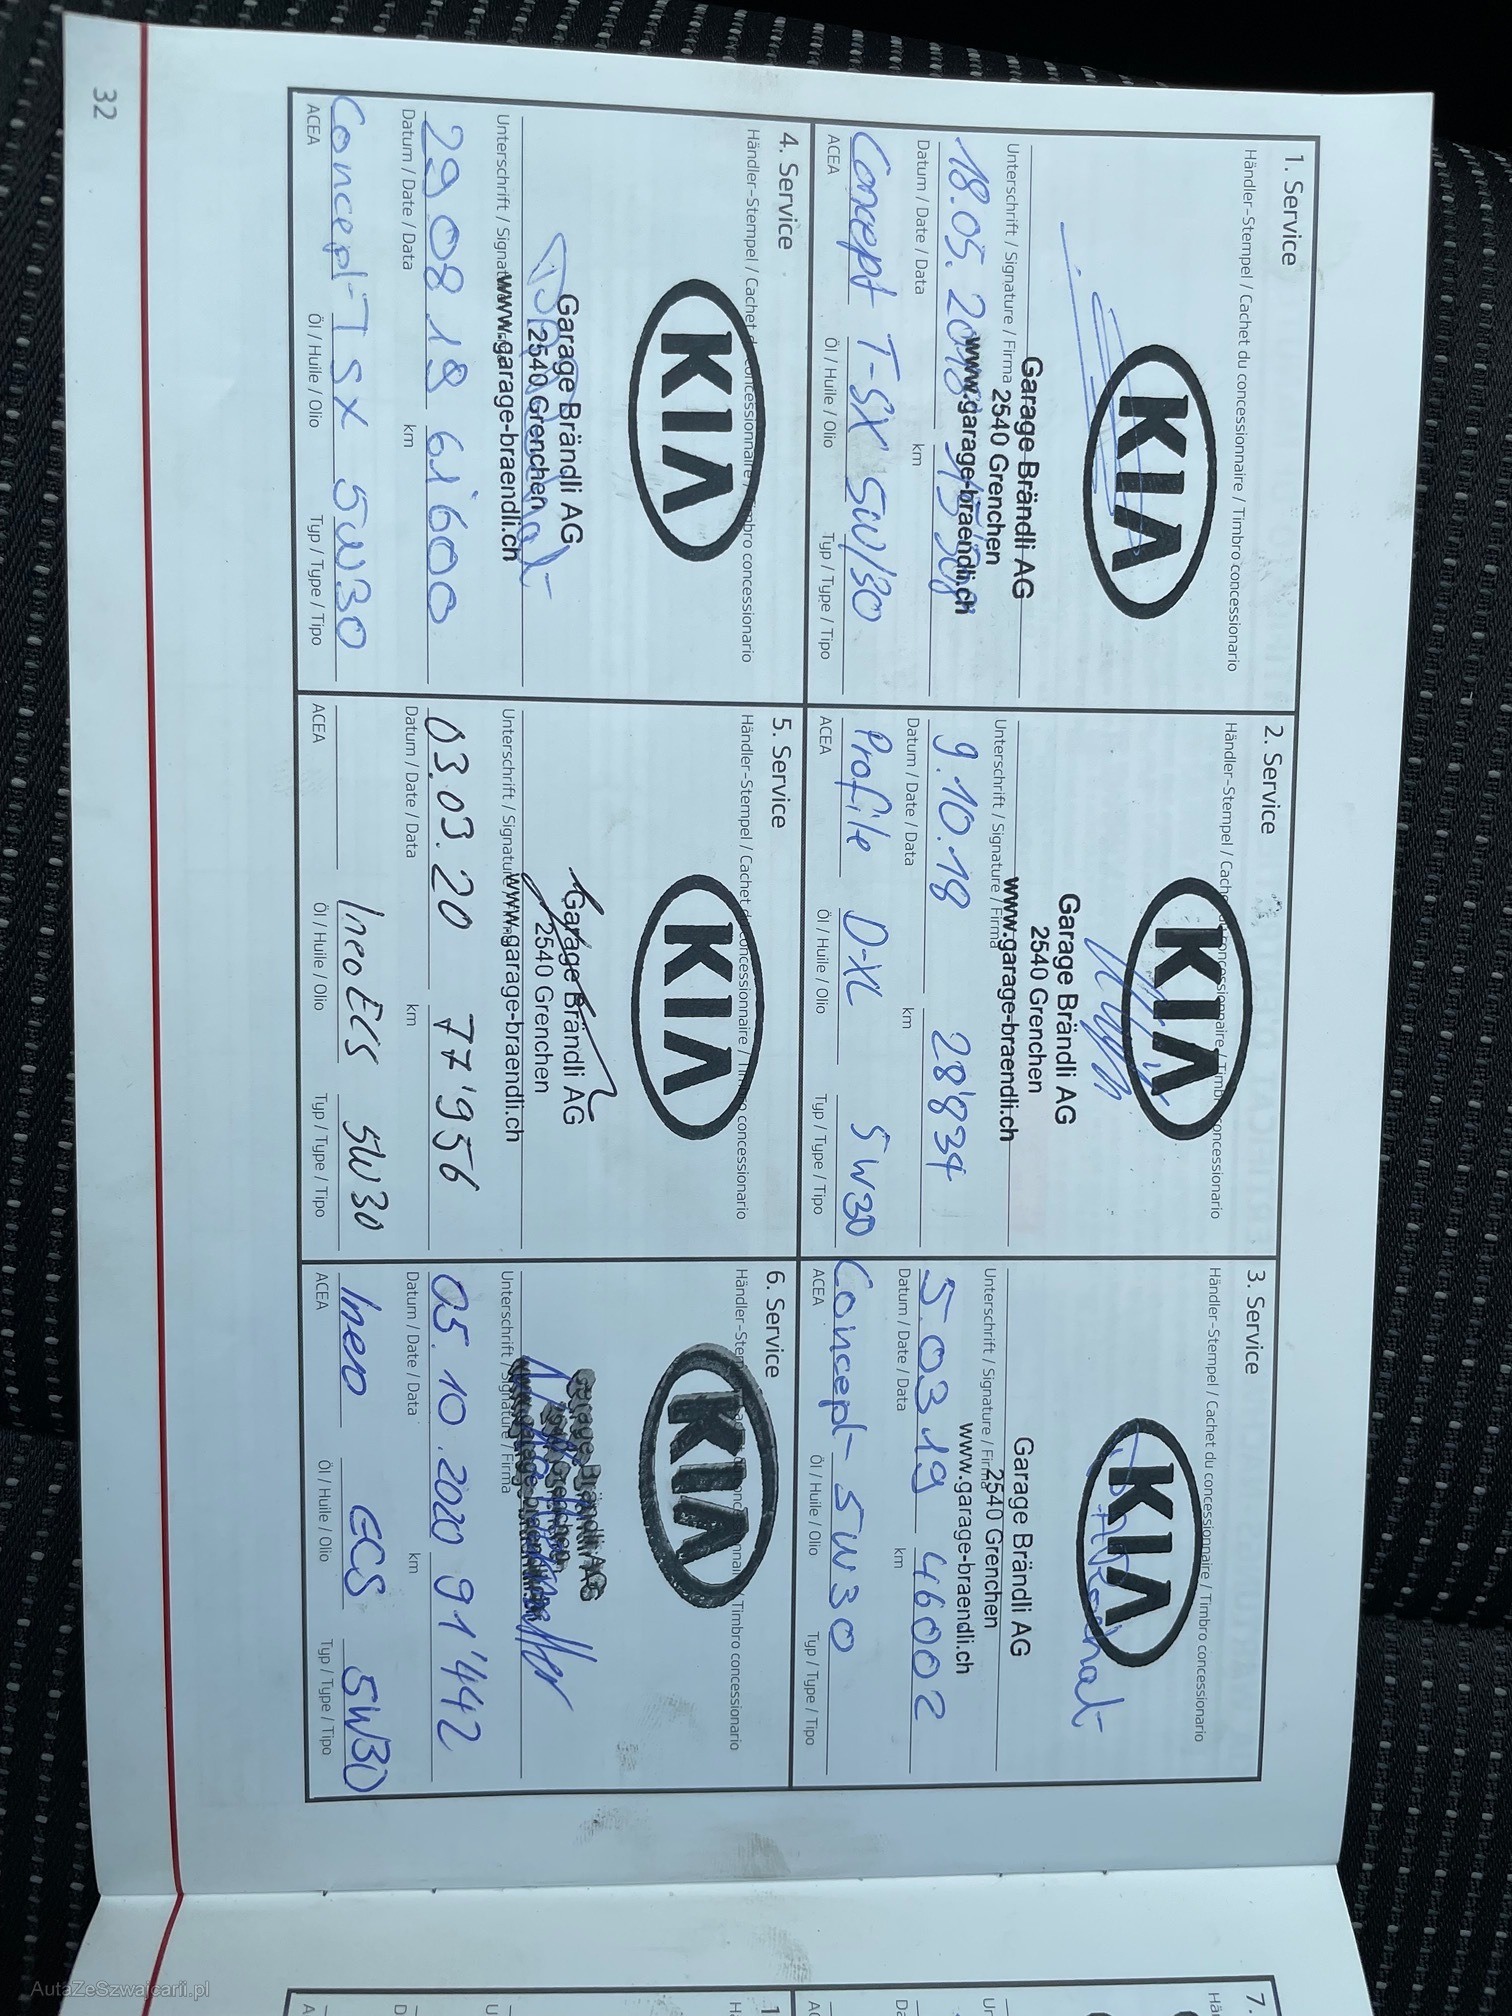 1. Service
Händler-Stempel / Cachet du concessionnaire / Timbro concessionario
KIA
Garage Brändli AG
2540 Grenchen
Unterschrift / Signature / Firma
www.garage-braendli.ch
18.05.2018
Datum / Date / Data
km
Concept T-SX 5W/30
ACEA
Öl / Huile / Olio
Typ / Type / Tipo
2. Service
Händler-Stempel / Cachet du concessionnaire / Timbro concessionario
KIA
Garage Brändli AG
2540 Grenchen
www.garage-braendli.ch
Unterschrift / Signature / Firma
9.10.18 28'834
Datum / Date / Data
km
Profile D-XL 5W30
ACEA
Öl / Huile / Olio
Typ / Type / Tipo
3. Service
Händler-Stempel / Cachet du concessionnaire / Timbro concessionario
KIA
Garage Brändli AG
2540 Grenchen
Unterschrift / Signature / Firma
www.garage-braendli.ch
5.03.19 46002
Datum / Date / Data
km
Concept 5W30
ACEA
Öl / Huile / Olio
Typ / Type / Tipo
4. Service
Händler-Stempel / Cachet du concessionnaire / Timbro concessionario
KIA
Garage Brändli AG
2540 Grenchen
www.garage-braendli.ch
Unterschrift / Signature
29 08 19 61'600
Datum / Date / Data
km
Concept TSX 5W30
ACEA
Öl / Huile / Olio
Typ / Type / Tipo
5. Service
Händler-Stempel / Cachet du concessionnaire / Timbro concessionario
KIA
Garage Brändli AG
2540 Grenchen
www.garage-braendli.ch
Unterschrift / Signature
03.03.20 77'956
Datum / Date / Data
km
Ineo ECS 5W30
ACEA
Öl / Huile / Olio
Typ / Type / Tipo
6. Service
Händler-Stempel / Timbro concessionario
KIA
Garage Brändli AG
Unterschrift / Signature / Firma
05.10.2020 91'442
Datum / Date / Data
km
Ineo ECS 5W30
ACEA
Öl / Huile / Olio
Typ / Type / Tipo
32
7.
AutaZeSzwajcarii.pl